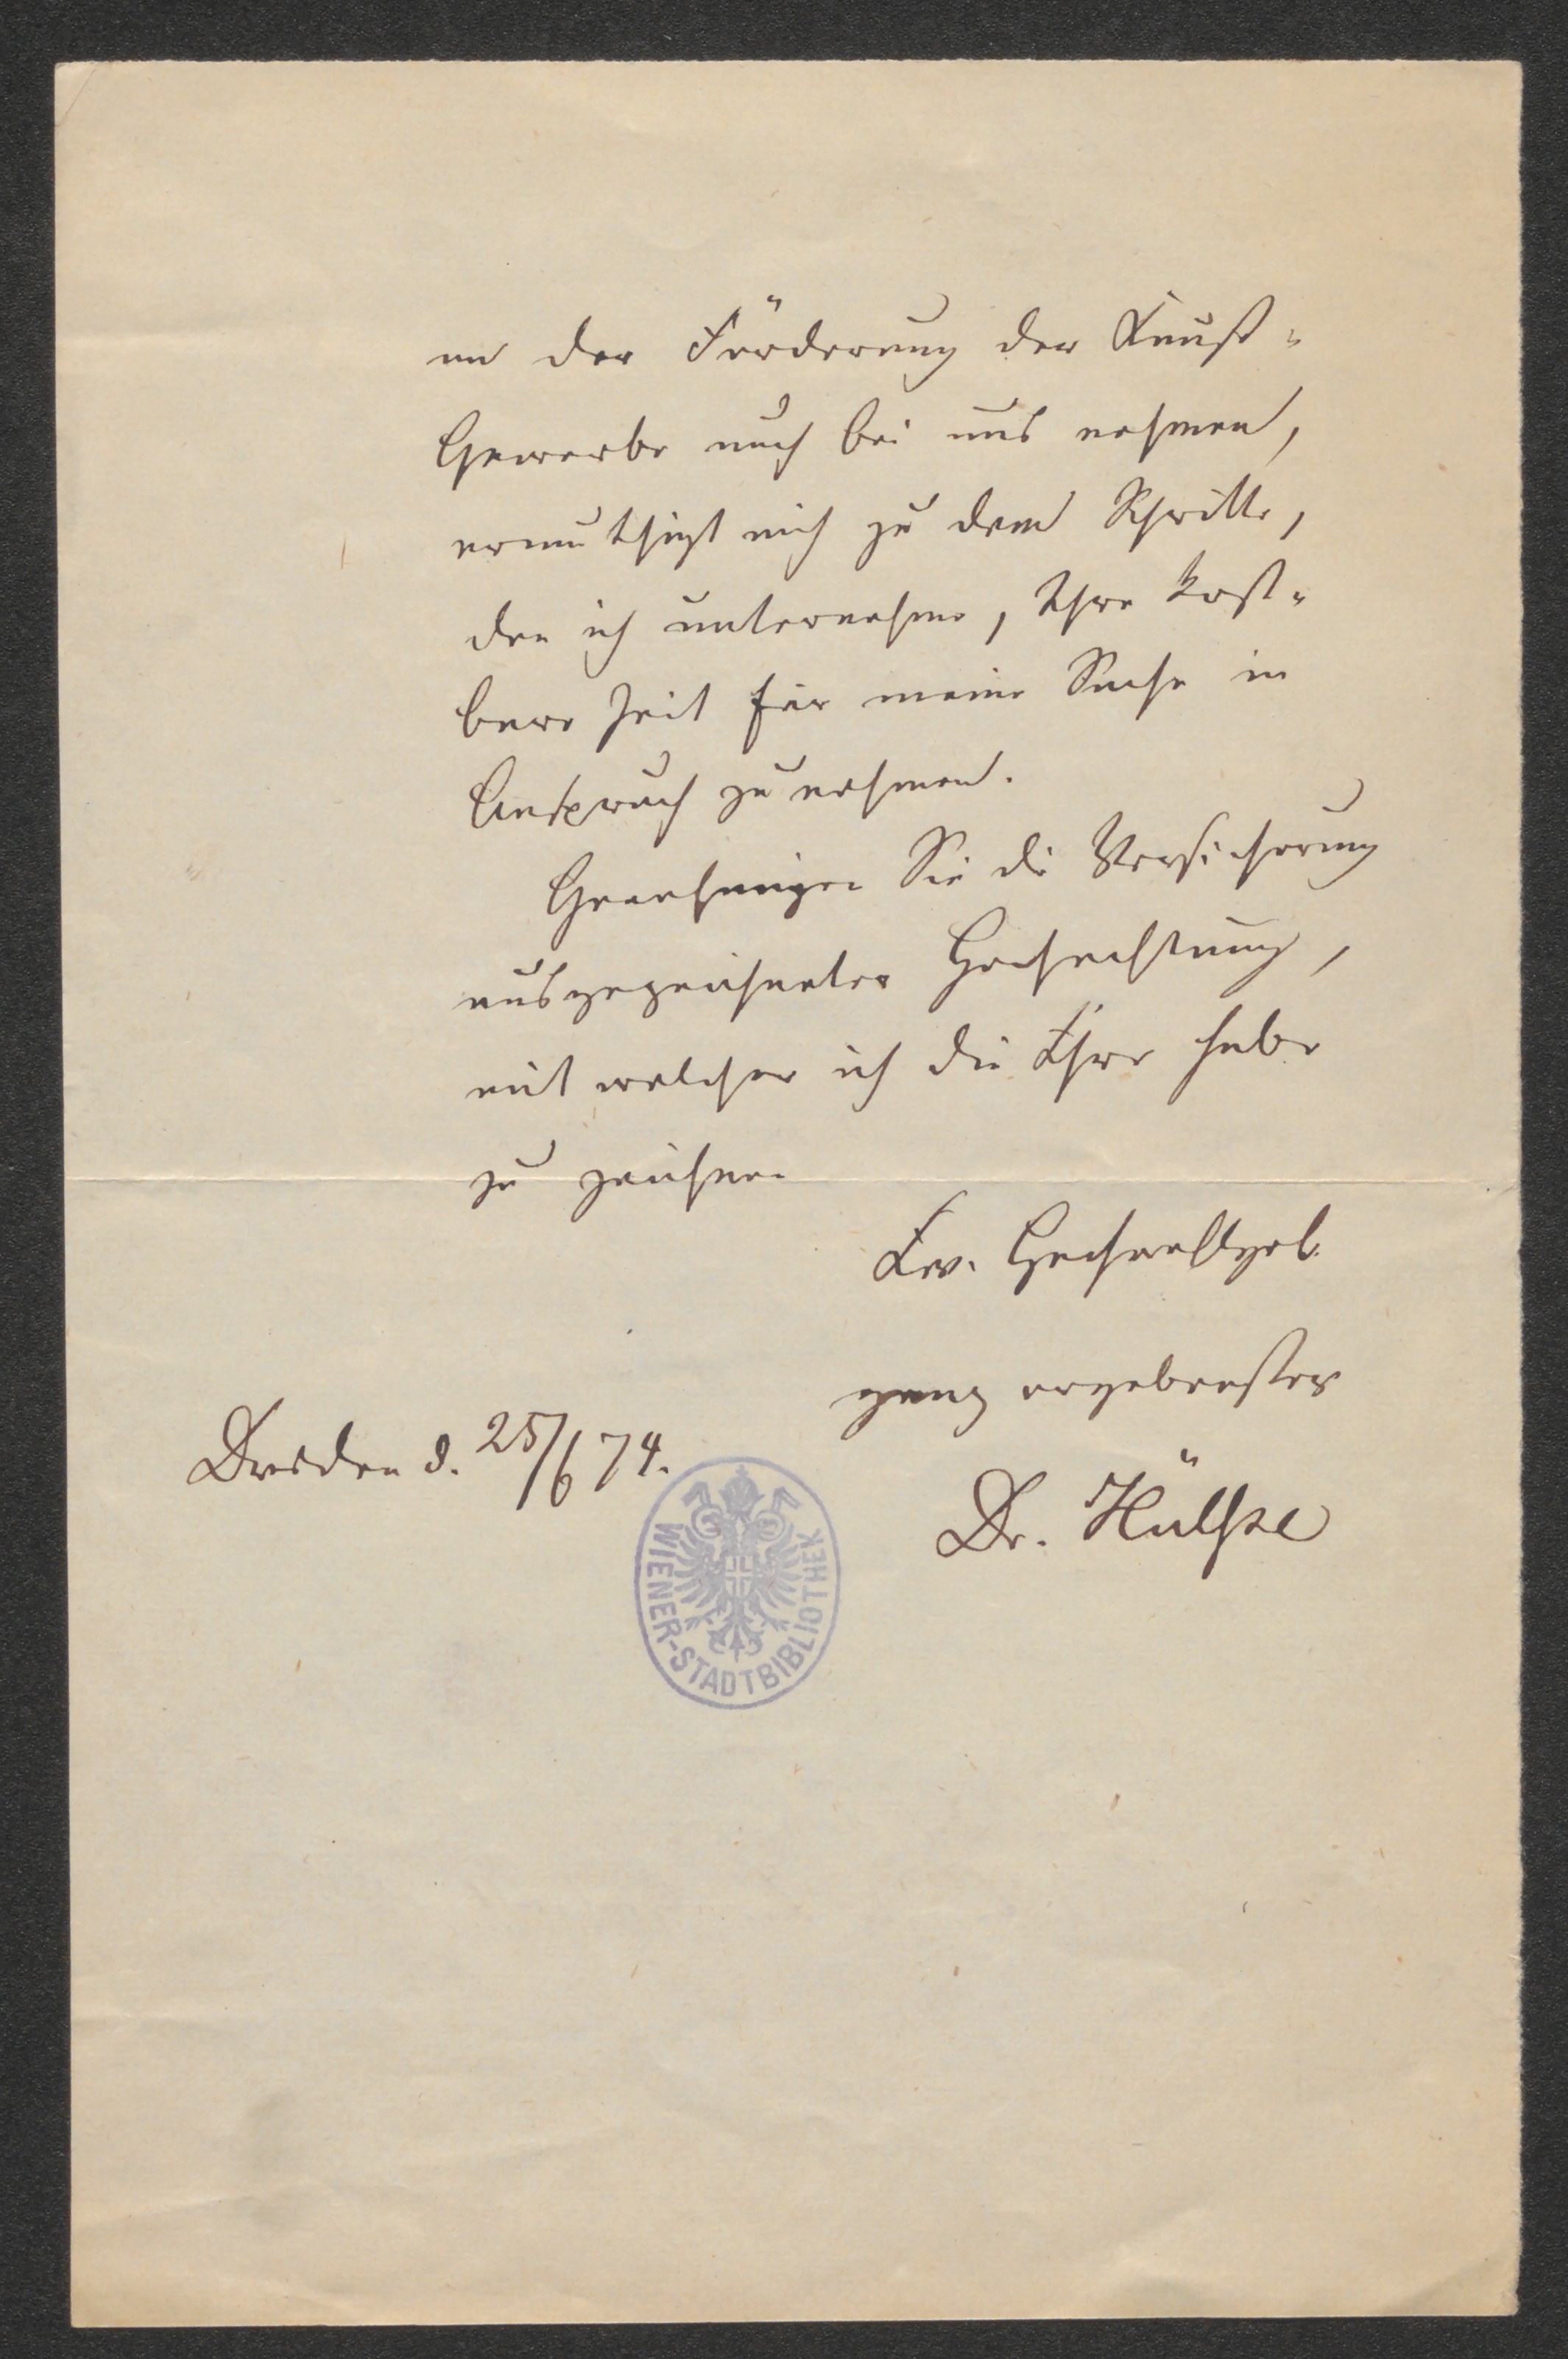 an der Förderung der Kunst-
Gewerbe auch bei uns nehmen,
ermuthigt mich zu dem Schritte,
den ich unternehme, Ihre kost-
bare Zeit für meine Sache in
Anspruch zu nehmen.
Genehmigen Sie die Versicherung
ausgezeichneter Hochachtung,
mit welcher ich die Ehre habe
zu zeichnen
Ew. Hochwohlgeb.
ganz ergebenster
Dresden d. 25/6 74.
Dr. Hülsse
WIENER-STADTBIBLIOTHEK